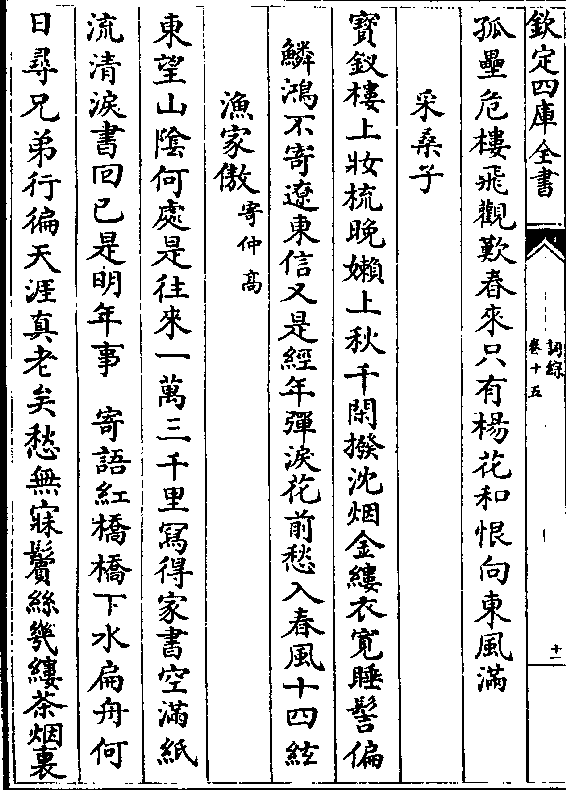 欽定四庫全書
詞綜
卷十五
十一
孤壘危樓飛觀歎春來只有楊花和恨向東風滿
采桑子
寶釵樓上妝梳晚嬾上秋千閑撥沈烟金縷衣寛睡髻偏
鱗鴻不寄遼東信又是經年彈淚花前愁入春風十四絃
漁家傲寄仲高
東望山隂何處是往來一萬三千里冩得家書空滿紙
流清淚書回已是明年事　寄語紅橋橋下水扁舟何
日尋兄弟行徧天涯真老矣愁無寐鬢絲幾縷茶烟裏